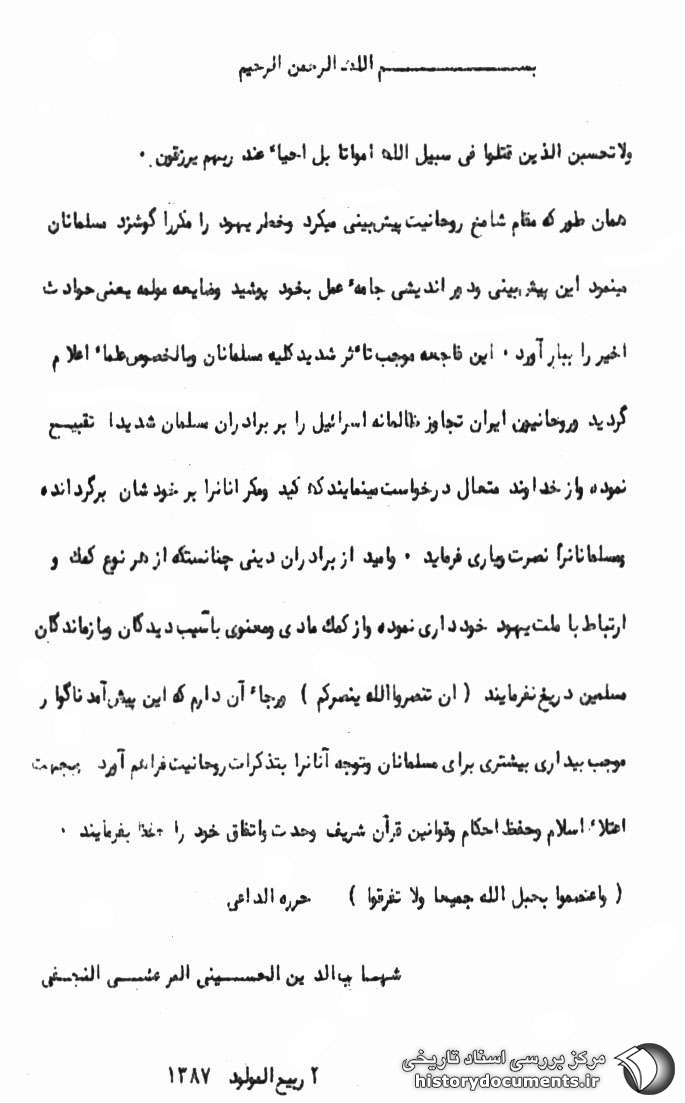 بسم الله الرحمن الرحیم
ولاتحسبن الذین قتلوا فی سبیل الله امواتا بل احیاء عند ربهم یرزقون .
همان طور که مقام شامخ روحانیت پیش‌بینی میکرد وخطر یهود را مکررا گوشزد مسلمانان
مینمود این پیش‌بینی ودور اندیشی جامهٔ عمل بخود پوشید وضایعه مولمه یعنی حوادث
اخیر را ببار آورد . این فاجعه موجب تأثر شدید کلیه مسلمانان وبالخصوص علماء اعلام
گردید وروحانیون ایران تجاوز ظالمانه اسرائیل را بر برادران مسلمان شدیدا تقبیح
نموده واز خداوند متعال درخواست مینمایند که کید ومکر انانرا بر خودشان برگردانده
ومسلمانانرا نصرت ویاری فرماید . وامید از برادران دینی چنانستکه از هر نوع کمک و
ارتباط با ملت یهود خودداری نموده واز کمک مادی ومعنوی باآسیب دیدگان وبازماندگان
مسلمین دریغ نفرمایند ( ان تنصرواالله ینصرکم ) ورجاء آن دارم که این پیش‌آمد ناگوار
موجب بیداری بیشتری برای مسلمانان وتوجه آنانرا بتذکرات روحانیت فراهم آورد وبجهت
اعتلاء اسلام وحفظ احکام وقوانین قرآن شریف وحدت واتفاق خود را حفظ بفرمایند .
( واعتصموا بحبل الله جمیعا ولا تفرقوا ) حرره الداعی
شهاب‌الدین الحسینی المرعشی النجفی
۲ ربیع المولود ۱۳۸۷
مرکز بررسی اسناد تاریخی
historydocuments.ir